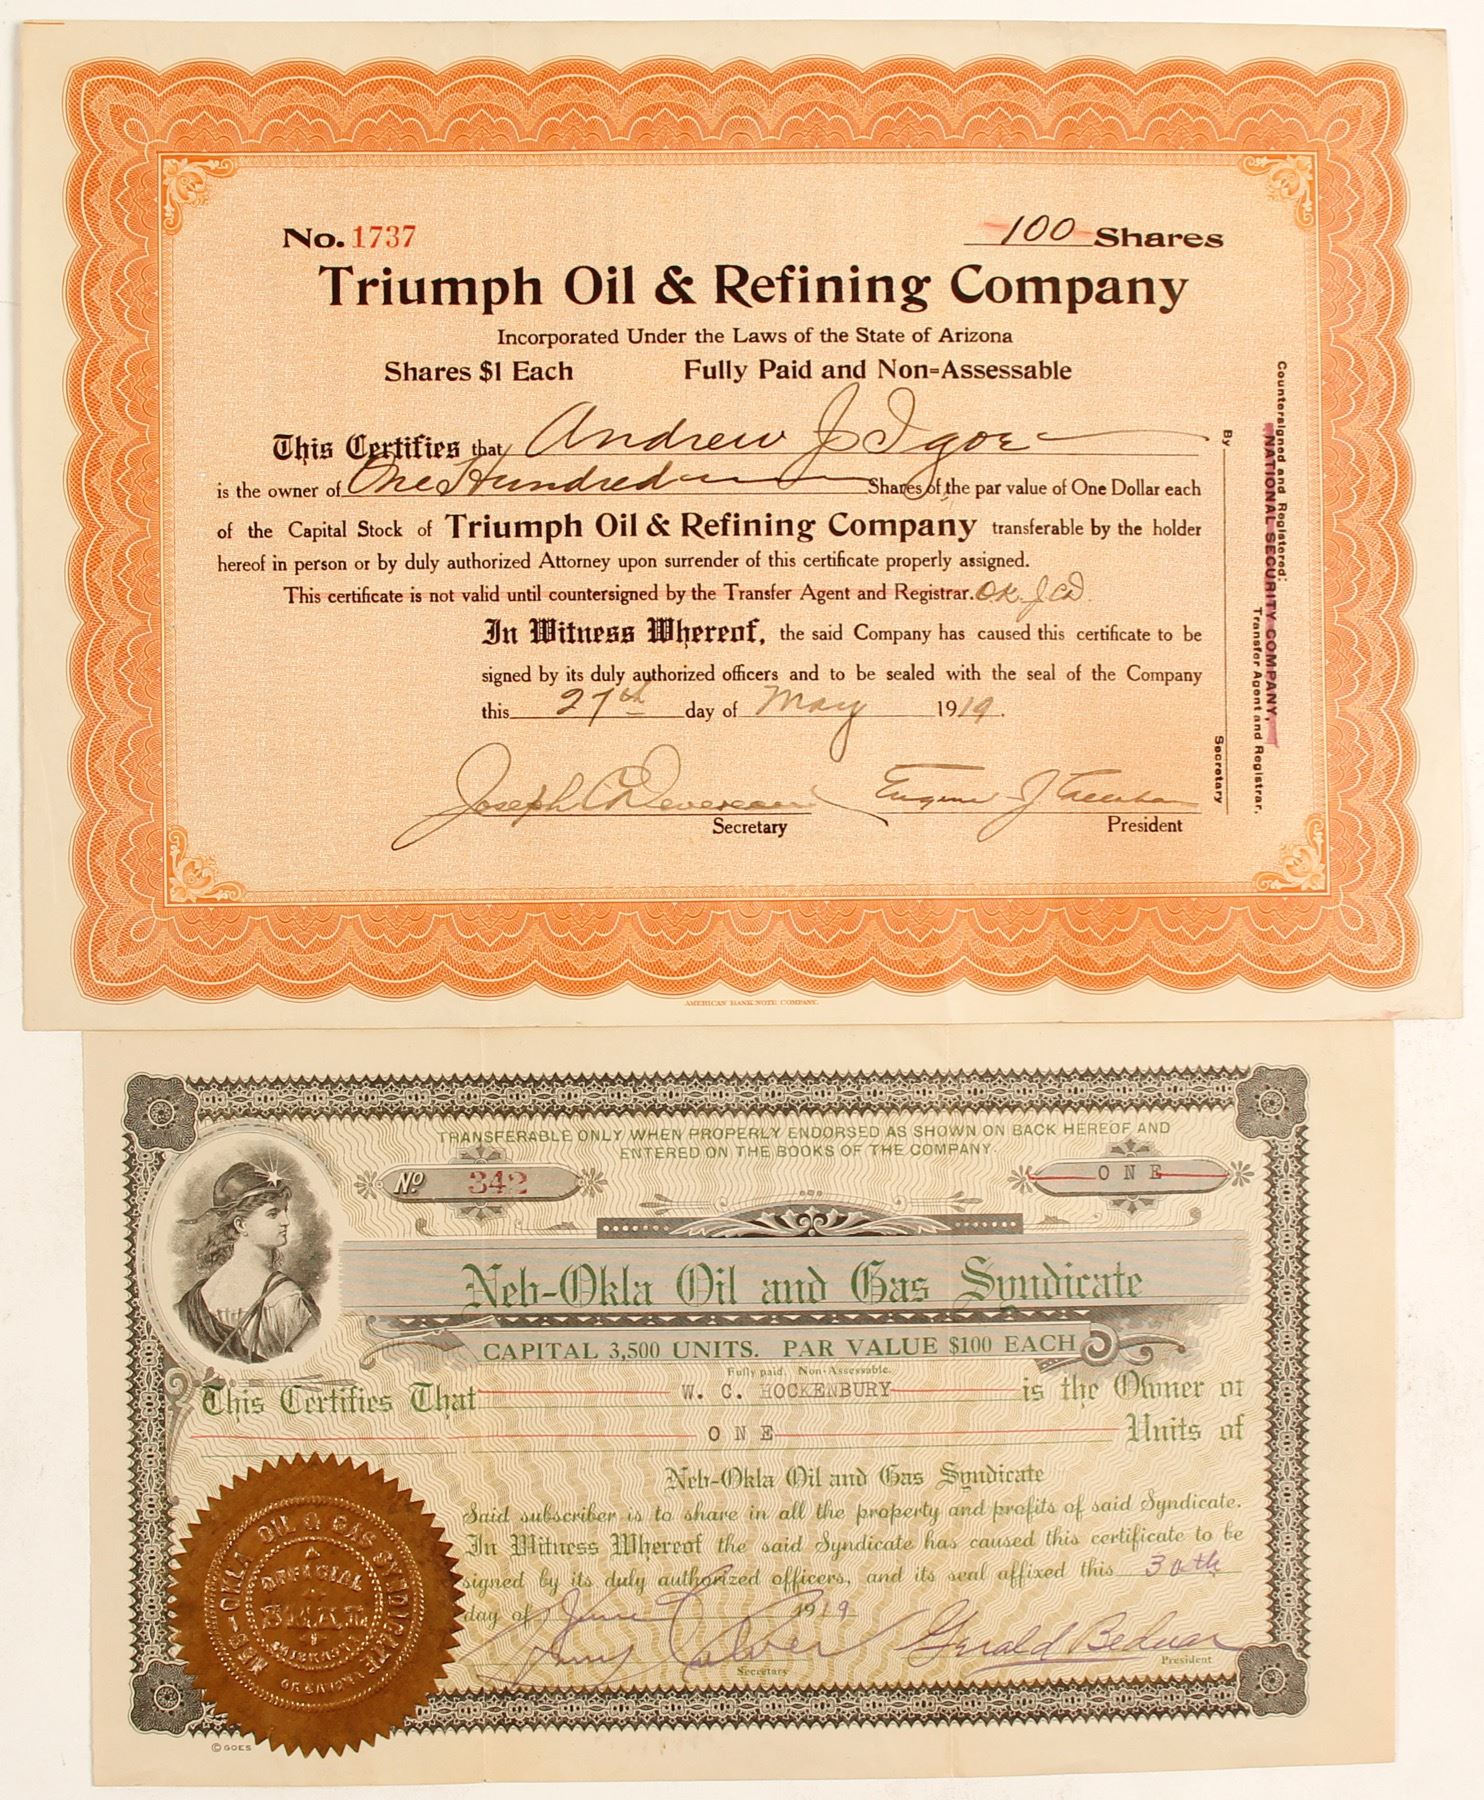 No. 1737 100 Shares
Triumph Oil & Refining Company
Incorporated Under the Laws of the State of Arizona
Shares $1 Each Fully Paid and Non=Assessable
This Certifies that Andrew J Igoe
is the owner of One Hundred Shares of the par value of One Dollar each
of the Capital Stock of Triumph Oil & Refining Company transferable by the holder
hereof in person or by duly authorized Attorney upon surrender of this certificate properly assigned.
This certificate is not valid until countersigned by the Transfer Agent and Registrar. O.K. J.C.D.
In Witness Whereof, the said Company has caused this certificate to be
signed by its duly authorized officers and to be sealed with the seal of the Company
this 27th day of May 1919.
Joseph C Devereaux Eugene J
Secretary President
Countersigned and Registered:
NATIONAL SECURITY COMPANY,
Transfer Agent and Registrar.
By
Secretary
AMERICAN BANK NOTE COMPANY.
TRANSFERABLE ONLY WHEN PROPERLY ENDORSED AS SHOWN ON BACK HEREOF AND
ENTERED ON THE BOOKS OF THE COMPANY.
No 342 ONE
Neb-Okla Oil and Gas Syndicate
CAPITAL 3,500 UNITS. PAR VALUE $100 EACH
Fully paid. Non-Assessable.
This Certifies That W. C. HOCKENBURY is the Owner of
ONE Units of
Neb-Okla Oil and Gas Syndicate
Said subscriber is to share in all the property and profits of said Syndicate.
In Witness Whereof the said Syndicate has caused this certificate to be
signed by its duly authorized officers, and its seal affixed this 30th
day of June 1919
Gerald Bednar
Secretary President
NEB-OKLA OIL & GAS SYNDICATE
OFFICIAL
SEAL
© GOES